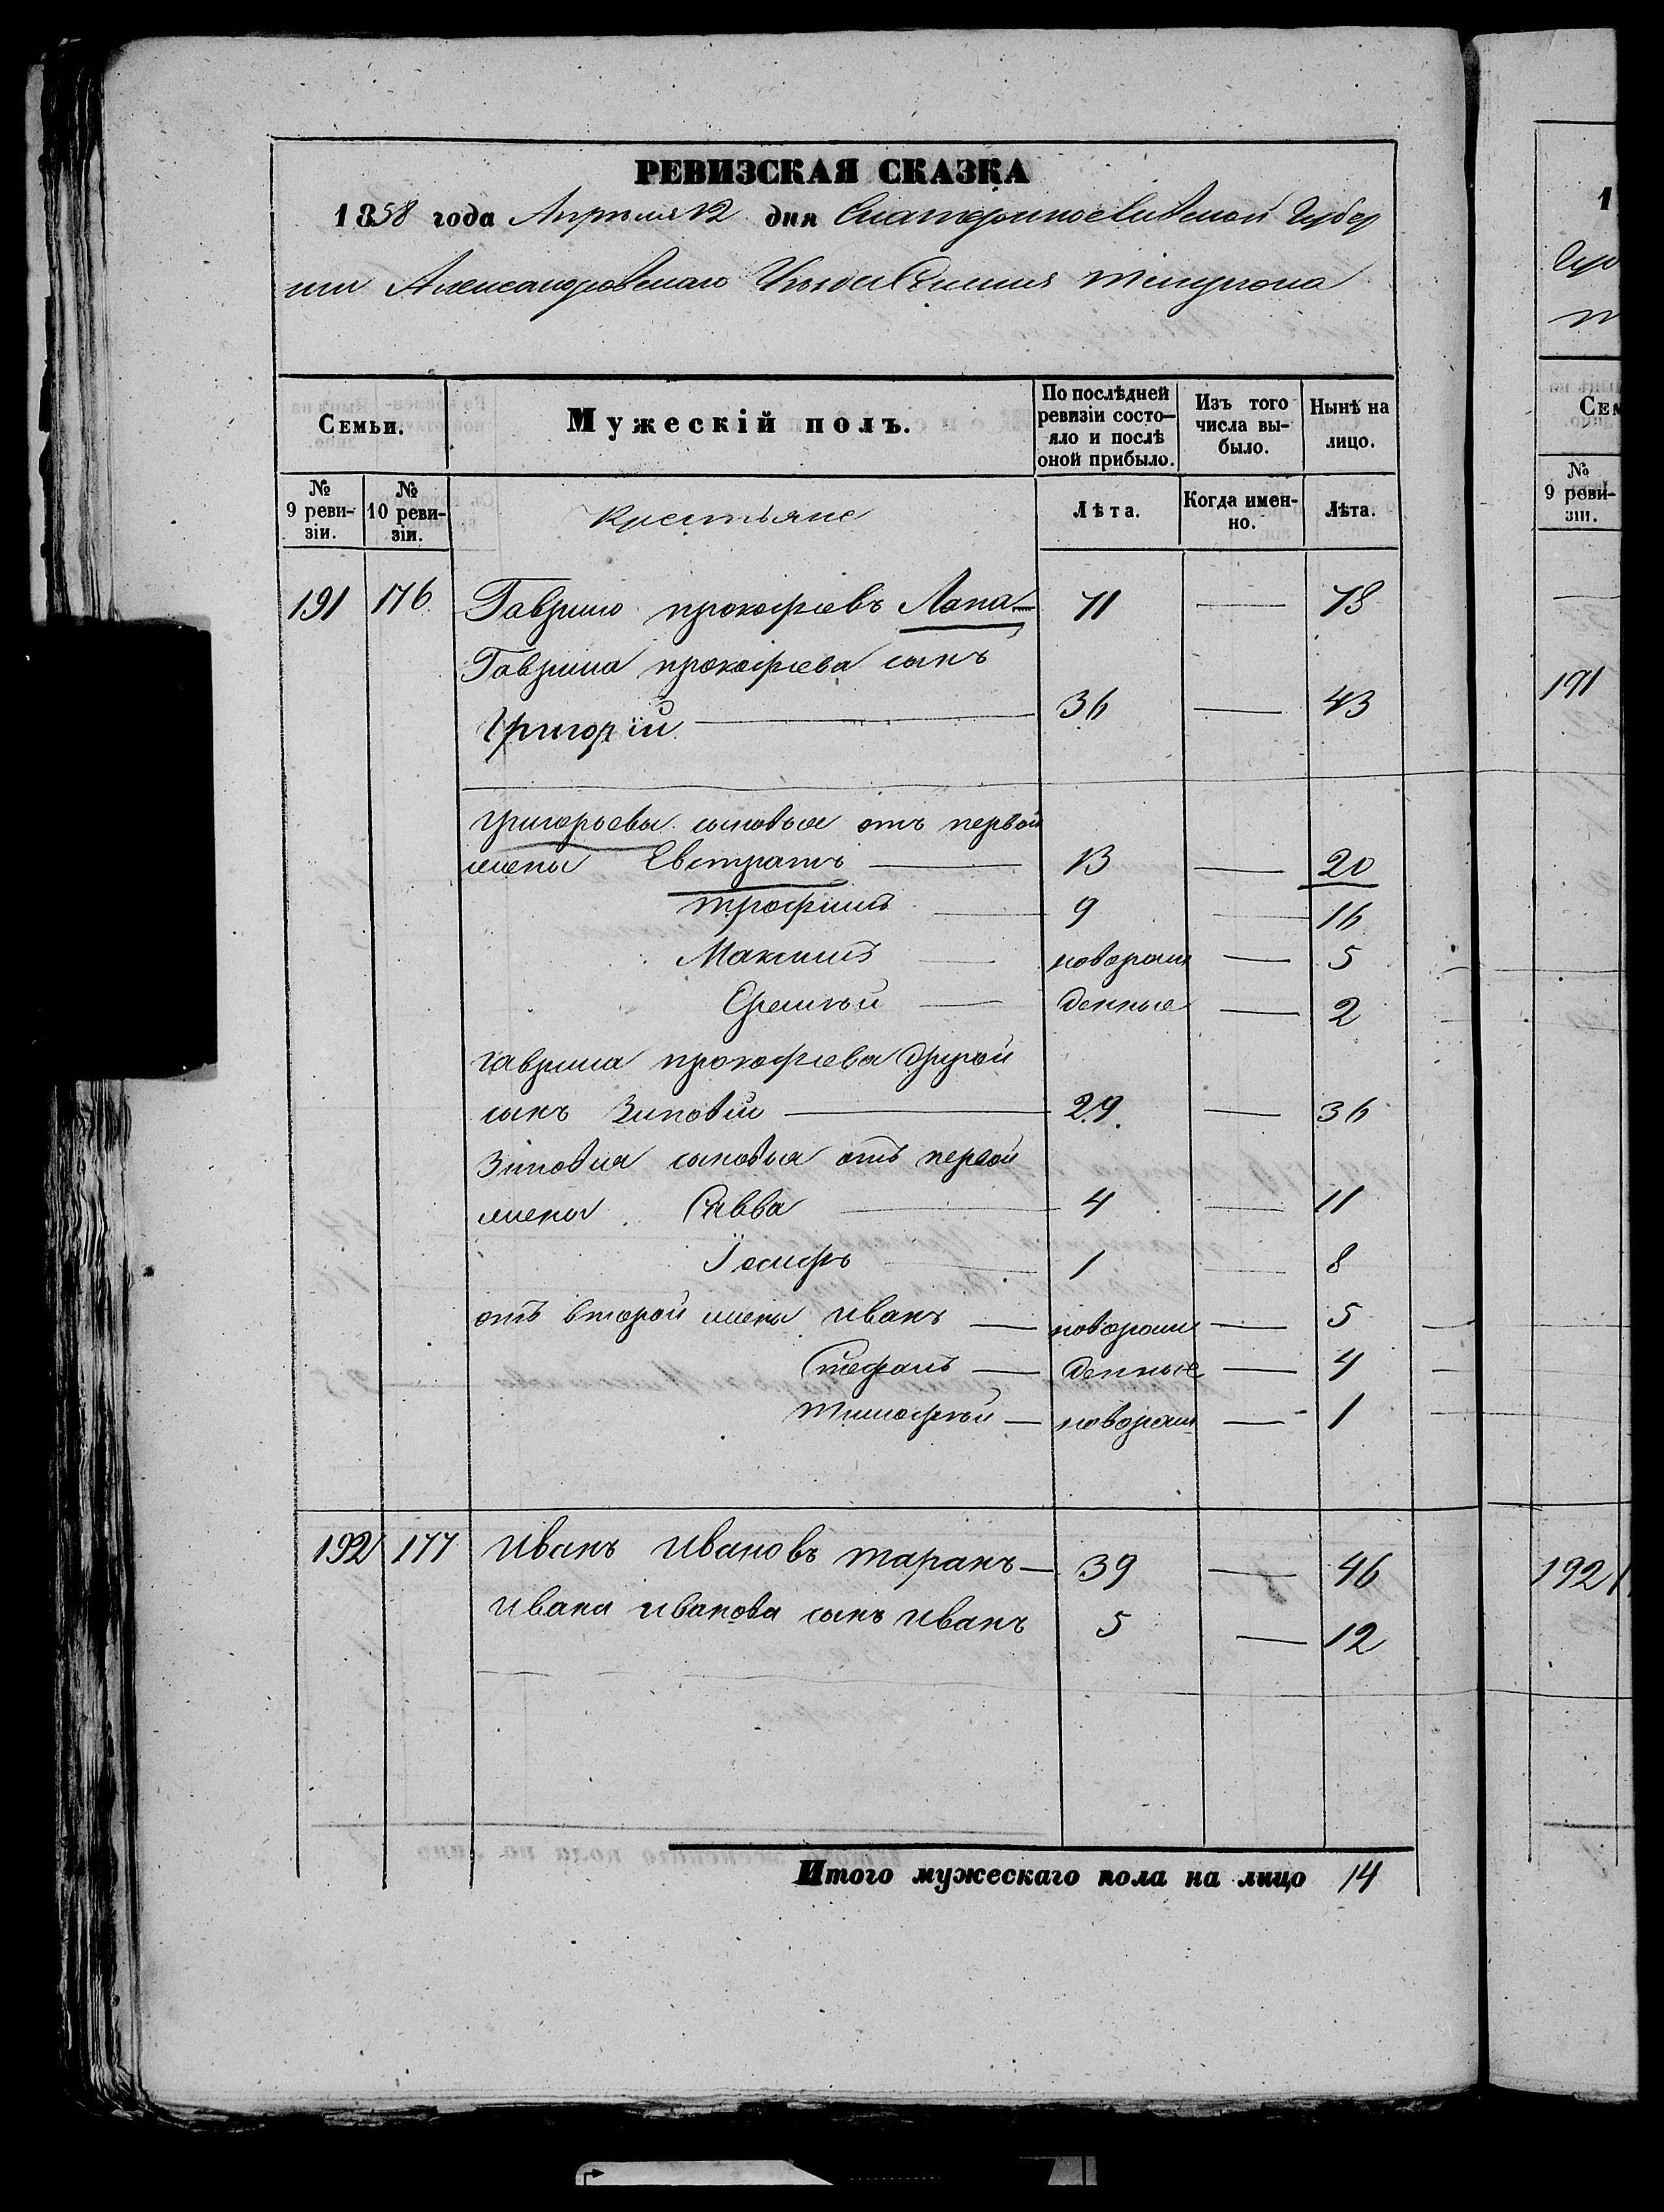 РЕВИЗСКАЯ СКАЗКА
1858 года Апрѣля 12 дня Екатеринославской Губер
нии Александровскаго Уѣзда Селения
Семьи. Мужескій полъ. По послѣдней ревизіи состо- яло и послѣ оной прибыло. Изъ того числа вы- было. Нынѣ на лицо.
№ 9 реви- зіи. № 10 реви- зіи. Крестьяне Лѣта. Когда имен- но. Лѣта.
191 176 Гаврило прокофіевъ Лапа 71 — 78
Гаврила прокофіева сынъ
григорій — 36 — 43
григорьевы сыновья отъ первой
жены Евстратъ — 13 — 20
трофимъ — 9 — 16
Максимъ — новорож — 5
Еремѣй — денные — 2
гаврила прокофіева другой
сынъ Зиновій — 29 — 36
Зиновия сыновья отъ первой
жены Савва — 4 — 11
Іосифъ — 1 — 8
отъ второй жены иванъ — новорож — 5
Стефанъ — денные — 4
тимофѣй — новорож — 1
192 177 иванъ ивановъ таранъ — 39 — 46
ивана иванова сынъ иванъ 5 — 12
Итого мужескаго пола на лицо 14
1
Гу
Сем
№ 9 реви- зіи.
191
192